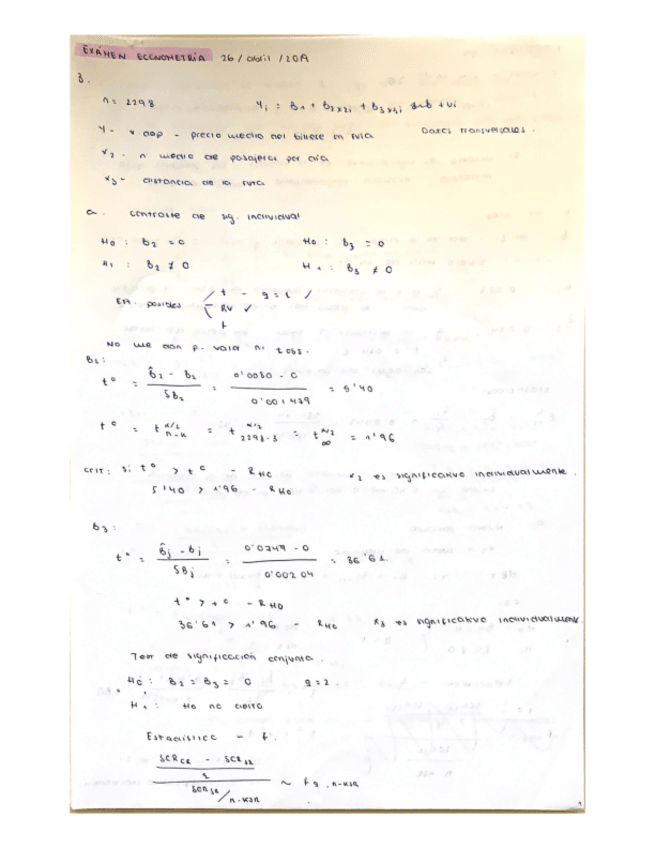 EXÁMEN ECONOMETRÍA 26 / abril / 2019
3.
n = 2298 Yi = B1 + B2x2i + B3x3i + ui
Y - precio medio del billete en ruta Datos transversales.
x2 - n medio de pasajeros por día
x3 - distancia de la ruta
a. Contraste de sig. individual
H0 : B2 = 0 H0 : B3 = 0
H1 : B2 ≠ 0 H1 : B3 ≠ 0
posibles t - q = 1 /
RV ✓
F
No me dan p. valor ni t obs.
B2:
t° = (B̂2 - B2) / SB2 = (0'0080 - 0) / 0'001479 = 5'40
tᶜ = t α/2 n-k = t α/2 2298-3 = t α/2 ∞ = 1'96
Crit: Si t° > tᶜ - RH0 x2 es significativo individualmente.
5'40 > 1'96 - RH0
B3:
t° = (B̂j - Bj) / SBj = (0'0747 - 0) / 0'00204 = 36'61
t° > tᶜ - RH0
36'61 > 1'96 - RH0 x3 es significativo individualmente
Test de significación conjunta.
H0 : B2 = B3 = 0 q = 2.
H1 : H0 no cierta
Estadístico - F.
((SCRCR - SCRSR) / q) / (SCRSR / n-KSR) ~ Fq, n-KSR